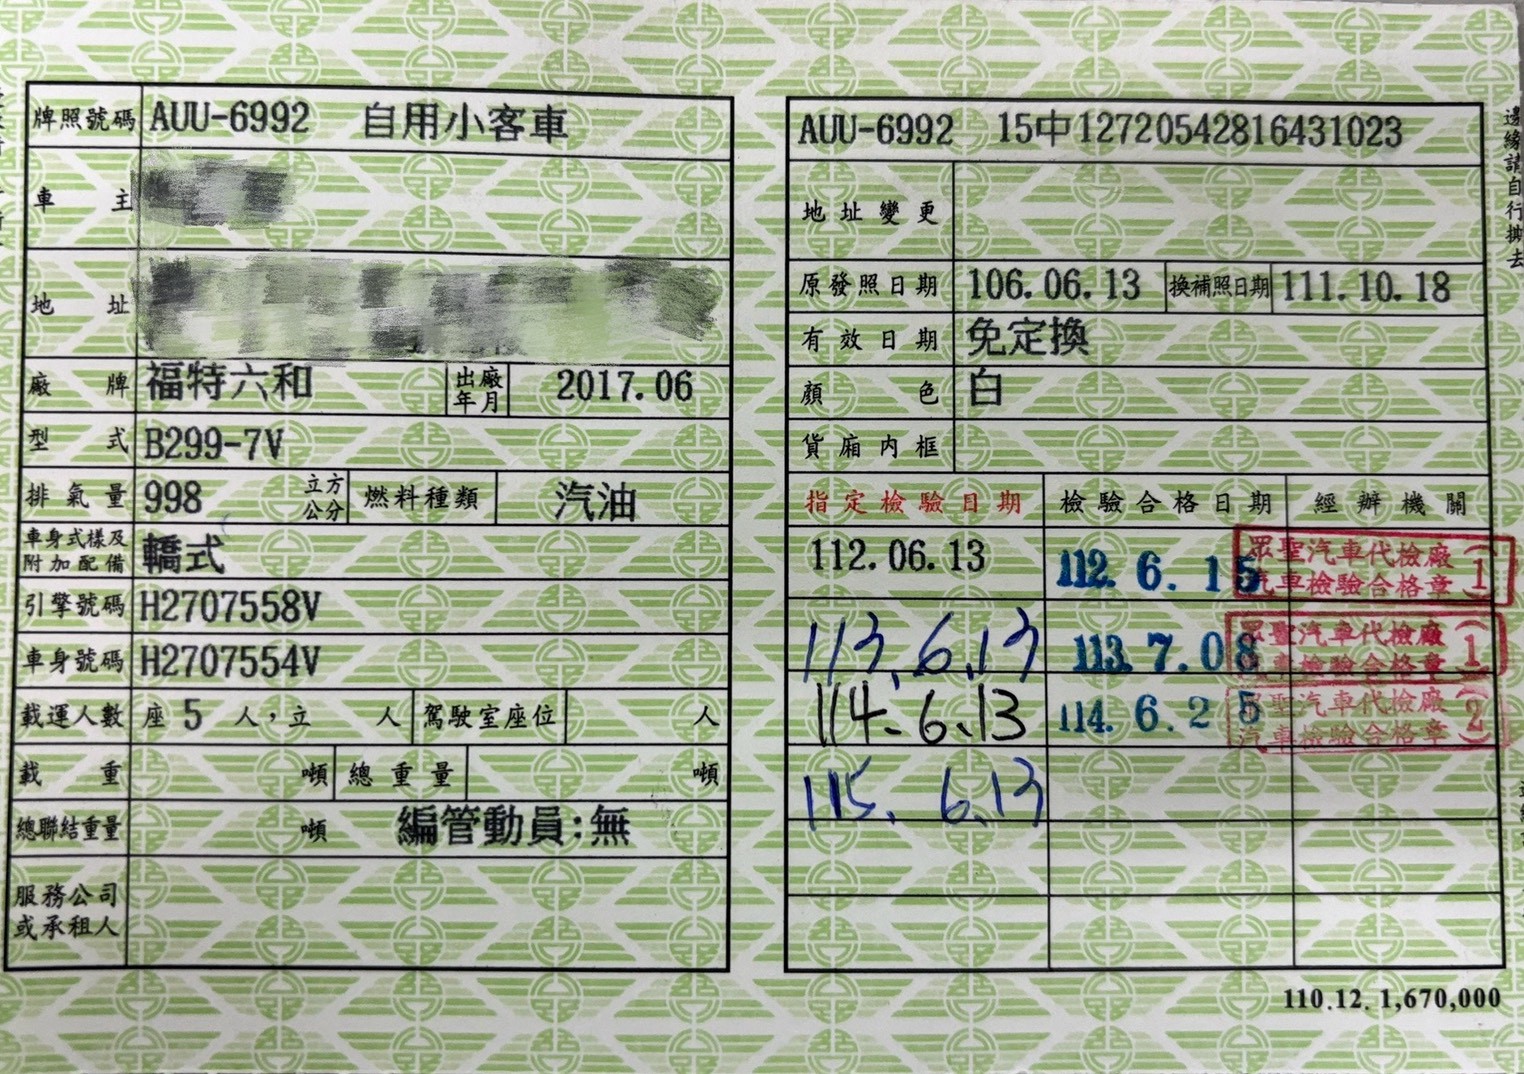 牌照號碼 AUU-6992 自用小客車
車主
地址
廠牌 福特六和 出廠年月 2017.06
型式 B299-7V
排氣量 998 立方公分 燃料種類 汽油
車身式樣及附加配備 轎式
引擎號碼 H2707558V
車身號碼 H2707554V
載運人數 座 5 人，立 人 駕駛室座位 人
載重 噸 總重量 噸
總聯結重量 噸 編管動員:無
服務公司或承租人
AUU-6992 15中12720542816431023
地址變更
原發照日期 106.06.13 換補照日期 111.10.18
有效日期 免定換
顏色 白
貨廂內框
指定檢驗日期 檢驗合格日期 經辦機關
112.06.13 112.6.15 眾聖汽車代檢廠 汽車檢驗合格章 (1)
113.6.13 113.7.08 眾聖汽車代檢廠 汽車檢驗合格章 (1)
114.6.13 114.6.25 聖汽車代檢廠 汽車檢驗合格章 (2)
115.6.13
110.12. 1,670,000
邊緣請自行撕去